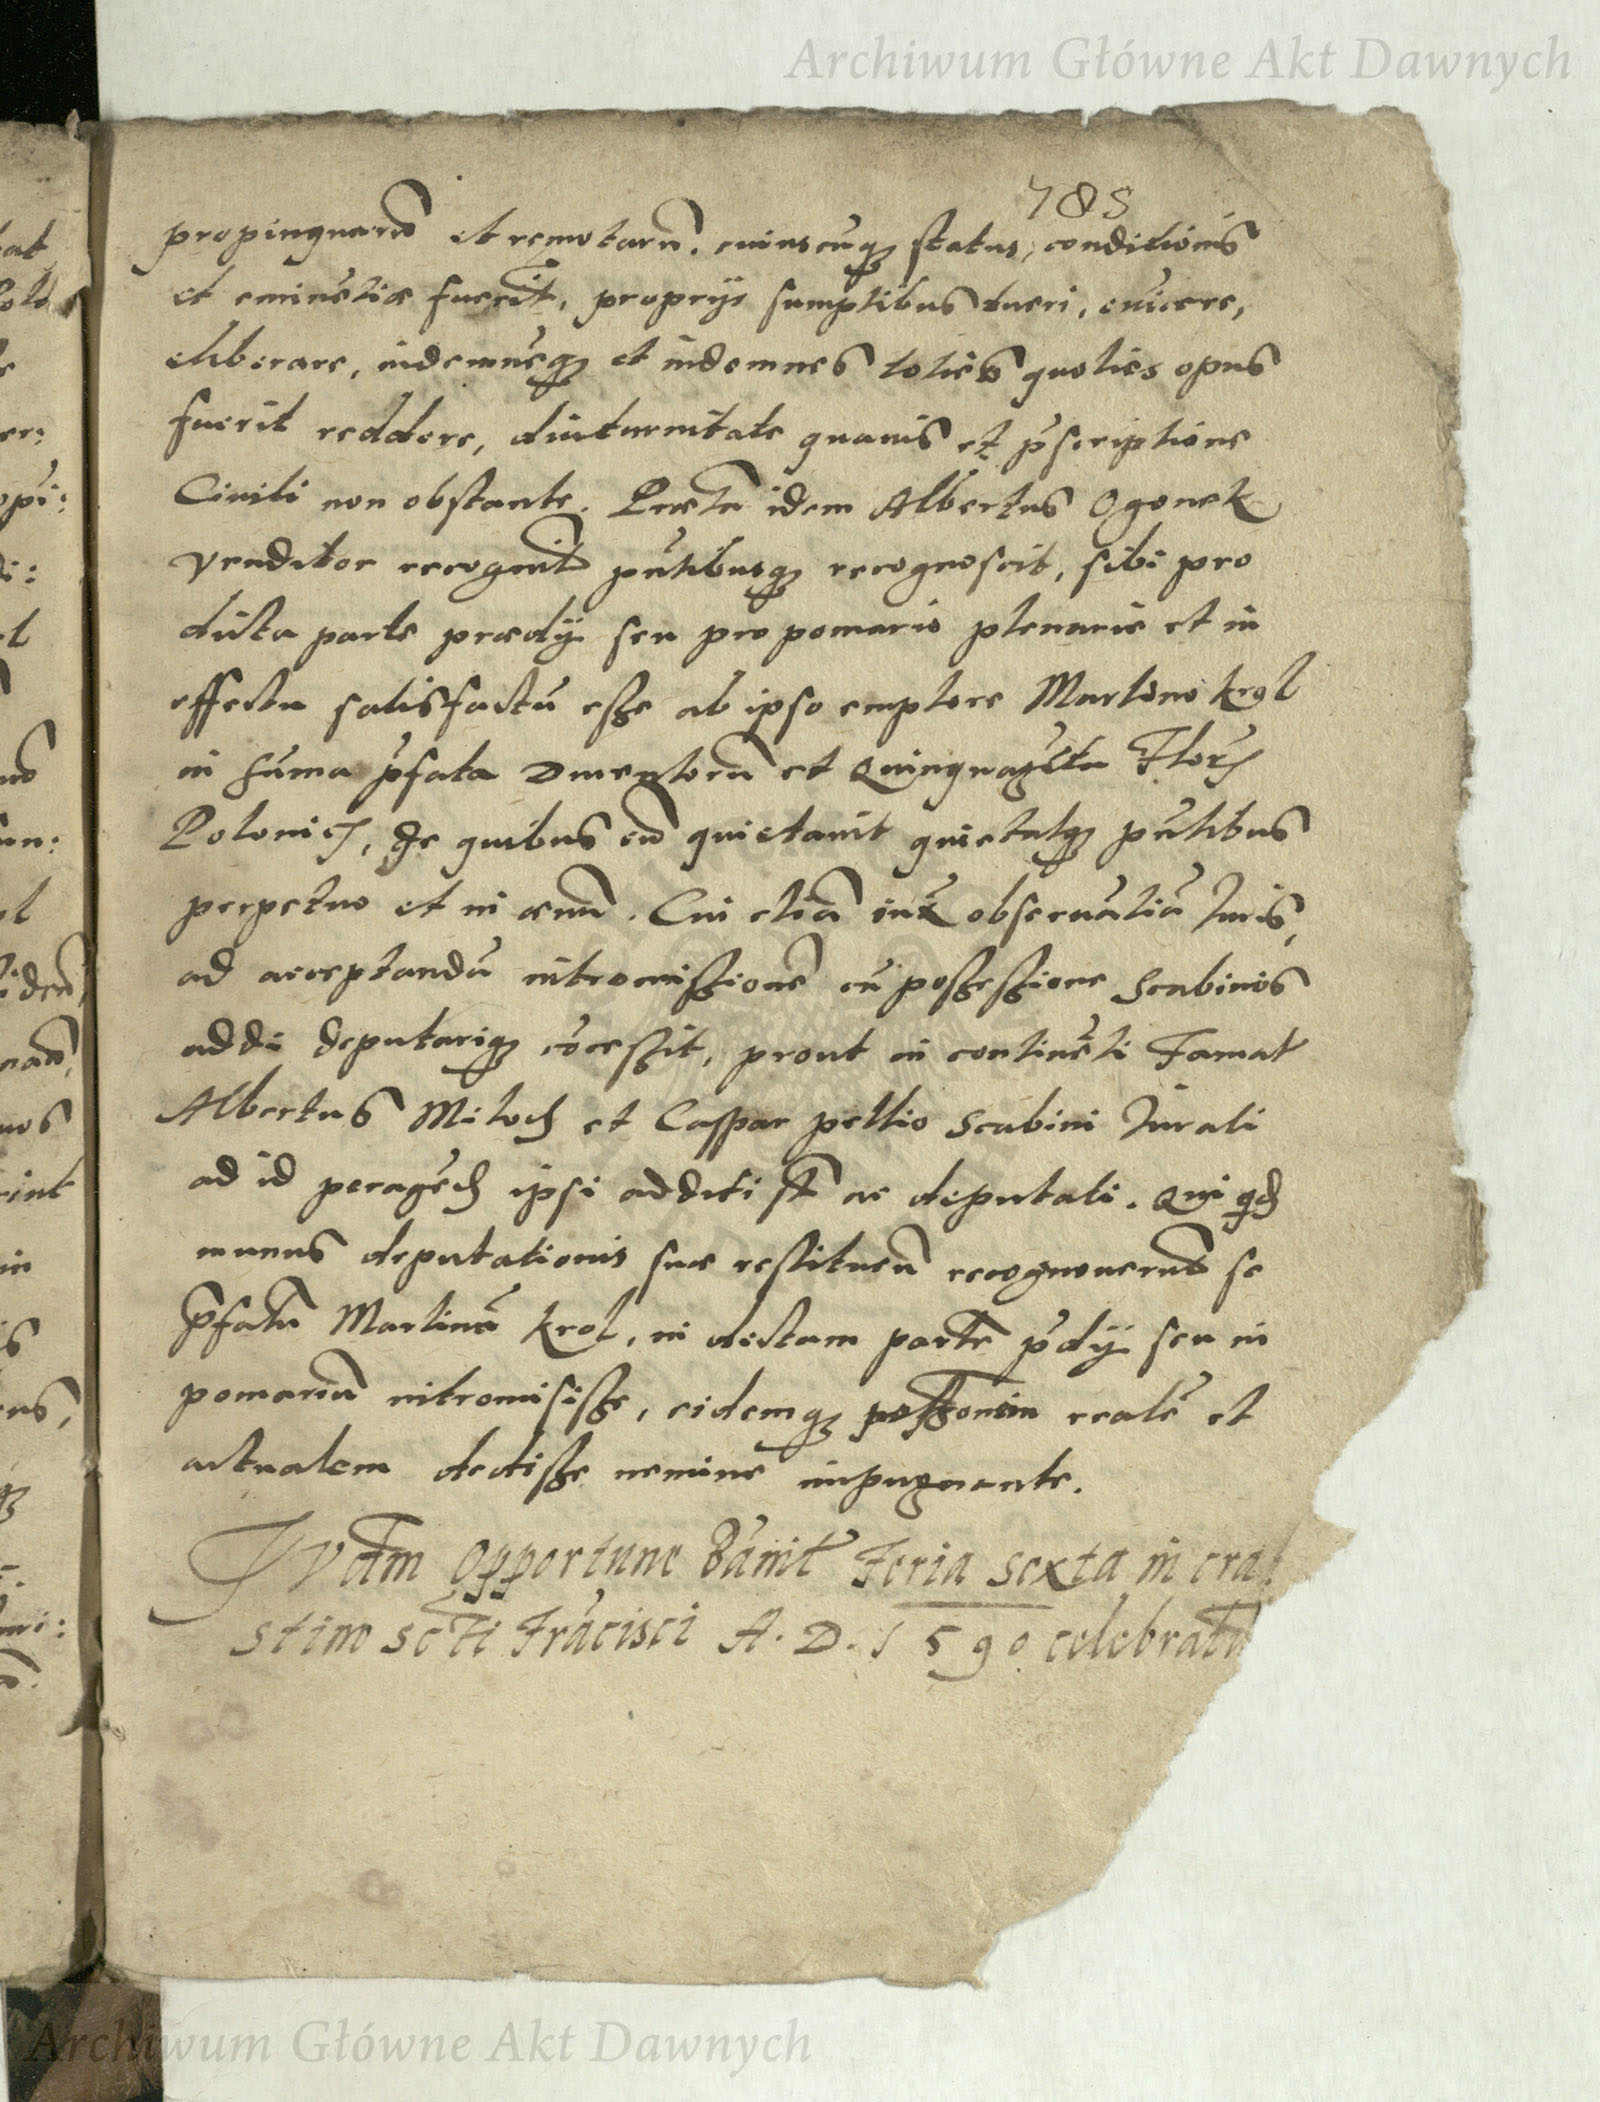 Archiwum Główne Akt Dawnych
785
propinquarũ et remotarũ, cuiuscũq; status, conditionis
et eminẽtiæ fuerit, proprijs sumptibus tueri, euicere,
eliberare, indemnẽq; et indemnes toties quoties opus
fuerit reddere, diuturnitate quauis et p̃scriptione
Ciuili non obstante. idem Albertus Ogonek
venditor recognouit p̃ntibusq; recognoscit, sibi pro
dicta parte prædij seu pro pomario plenarie et in
effectu satisfactũ esse ab ipso emptore Martino Krol
in sũma p̃fata Ducentorũ et Quinquagĩta Flor;
Polonic;, de quibus eũ quietauit quietatq; p̃ntibus
perpetuo et in æuũ. Cui etiã iux̃ obseruãtiã Iuris,
ad acceptandũ intromissionẽ cũ possessione Scabinos
addi deputariq; cõcessit, prout in continẽti Famat
Albertus Miloch et Caspar pellio Scabini Iurati
ad id peragẽd ipsi additi sũt ac deputati. Qui qd
munus deputationis suæ restituẽũ recognouerunt se
p̃fatũ Martinũ Krol, in dictam partẽ p̃dij seu in
pomariũ intromisisse, eidemq; possessionem realẽ et
actualem dedisse nemine impugnante.
IVdm opportune bãnit Feria sexta in cra
stino sc̃ti Frãcisci A. D. 1590 celebratũ
Archiwum Główne Akt Dawnych